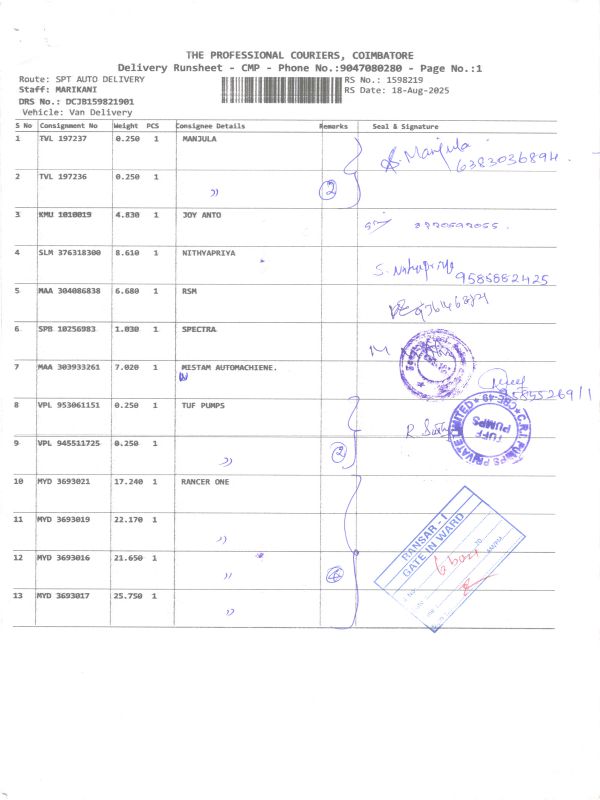 THE PROFESSIONAL COURIERS, COIMBATORE
Delivery Runsheet - CMP - Phone No.:9047080280 - Page No.:1
Route: SPT AUTO DELIVERY
RS No.: 1598219
Staff: MARIKANI
RS Date: 18-Aug-2025
DRS No.: DCJB159821901
Vehicle: Van Delivery
S No Consignment No Weight PCS Consignee Details Remarks Seal & Signature
1 TVL 197237 0.250 1 MANJULA S. Manjula
6383036894
2 TVL 197236 0.250 1 )) 2
3 KMU 1010019 4.830 1 JOY ANTO
4 SLM 376318300 8.610 1 NITHYAPRIYA
9585552425
5 MAA 304086838 6.680 1 RSM
6 SPB 10256983 1.030 1 SPECTRA
7 MAA 303933261 7.020 1 MISTAM AUTOMACHIENE.
8 VPL 953061151 0.250 1 TUF PUMPS
C.R.I. PUMPS PRIVATE LIMITED * CBE-49 *
TUFF PUMPS
9 VPL 945511725 0.250 1 )) 2
10 MYD 3693021 17.240 1 RANCER ONE
11 MYD 3693019 22.170 1 ))
RANSAR - I
GATE IN WARD
12 MYD 3693016 21.650 1 )) 4
13 MYD 3693017 25.750 1 ))